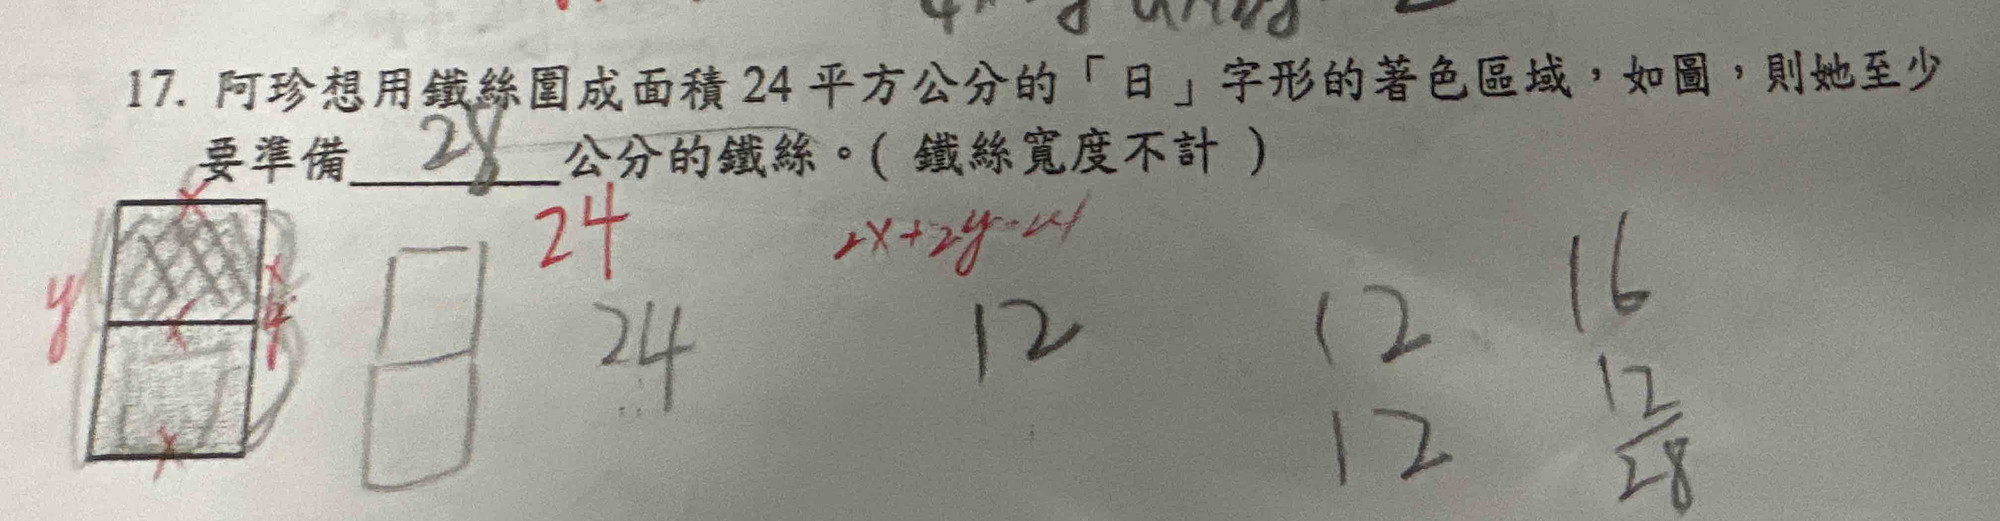 17. 阿珍想用鐵絲圍成面積 24 平方公分的「日」字形的著色區域，如圖，則她至少
要準備 28 公分的鐵絲。( 鐵絲寬度不計 )
24
2x+2y=24
x
y
x
x
y
x
24
12
12
12
16
12
28